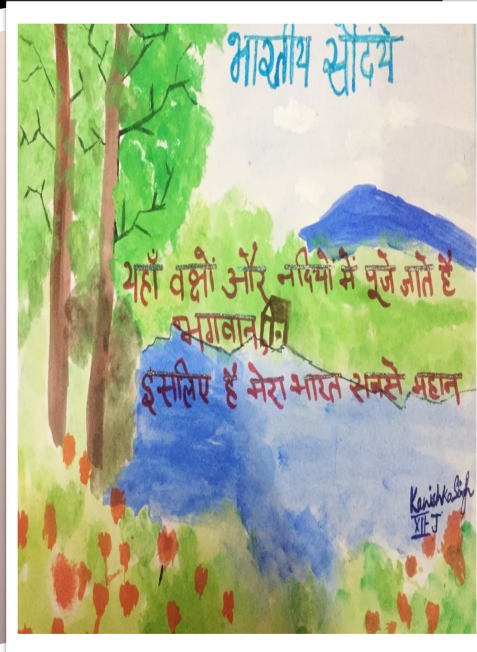 भारतीय सौंदर्य
यहाँ वृक्षों और नदियों में पूजे जाते हैं
भगवान,
इसलिए है मेरा भारत सबसे महान
Kanishka Singh
XII-J